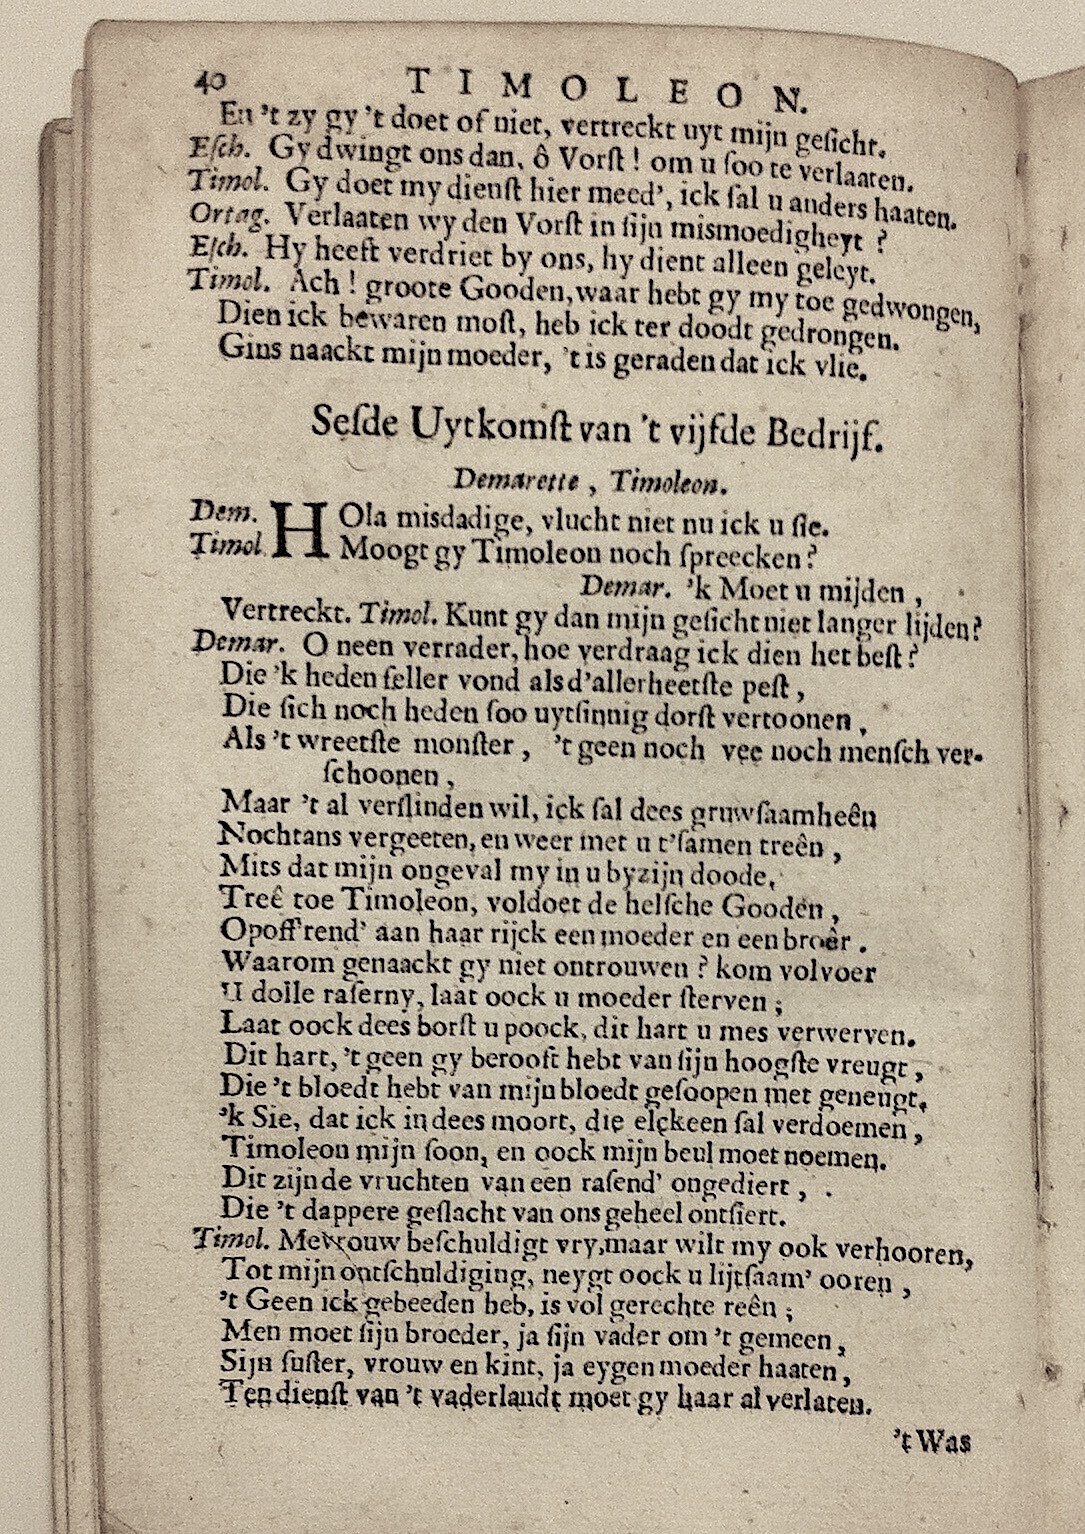 40 TIMOLEON.
En 't zy gy 't doet of niet, vertreckt uyt mijn geſicht.
Eſch. Gy dwingt ons dan, ô Vorſt! om u ſoo te verlaaten.
Timol. Gy doet my dienſt hier meed', ick ſal u anders haaten.
Ortag. Verlaaten wy den Vorſt in ſijn mismoedigheyt?
Eſch. Hy heeft verdriet by ons, hy dient alleen geleyt.
Timol. Ach! groote Gooden, waar hebt gy my toe gedwongen,
Dien ick bewaren moſt, heb ick ter doodt gedrongen.
Gins naackt mijn moeder, 't is geraden dat ick vlie.
Sesde Uytkomſt van 't vijfde Bedrijf.
Demarette, Timoleon.
Dem. HOla misdadige, vlucht niet nu ick u ſie.
Timol. Moogt gy Timoleon noch ſpreecken?
Demar. 'k Moet u mijden,
Vertreckt. Timol. Kunt gy dan mijn geſicht niet langer lijden?
Demar. O neen verrader, hoe verdraag ick dien het beſt?
Die 'k heden feller vond als d'allerheetſte peſt,
Die ſich noch heden ſoo uytſinnig dorſt vertoonen,
Als 't wreetſte monſter, 't geen noch vee noch menſch ver-
ſchoonen,
Maar 't al verſlinden wil, ick ſal dees gruwſaamheên
Nochtans vergeeten, en weer met u t'ſamen treên,
Mits dat mijn ongeval my in u byzijn doode,
Treê toe Timoleon, voldoet de helſche Gooden,
Opoff'rend' aan haar rijck een moeder en een broêr.
Waarom genaackt gy niet ontrouwen? kom volvoer
U dolle raſerny, laat oock u moeder ſterven;
Laat oock dees borſt u poock, dit hart u mes verwerven.
Dit hart, 't geen gy berooft hebt van ſijn hoogſte vreugt,
Die 't bloedt hebt van mijn bloedt geſoopen met geneugt,
'k Sie, dat ick in dees moort, die elckeen ſal verdoemen,
Timoleon mijn ſoon, en oock mijn beul moet noemen.
Dit zijn de vruchten van een raſend' ongediert,
Die 't dappere geſlacht van ons geheel ontſiert.
Timol. Mevrouw beſchuldigt vry, maar wilt my ook verhooren,
Tot mijn ontſchuldiging, neygt oock u lijtſaam' ooren,
't Geen ick gebeeden heb, is vol gerechte reên;
Men moet ſijn broeder, ja ſijn vader om 't gemeen,
Sijn ſuſter, vrouw en kint, ja eygen moeder haaten,
Ten dienſt van 't vaderlandt moet gy haar al verlaten.
't Was